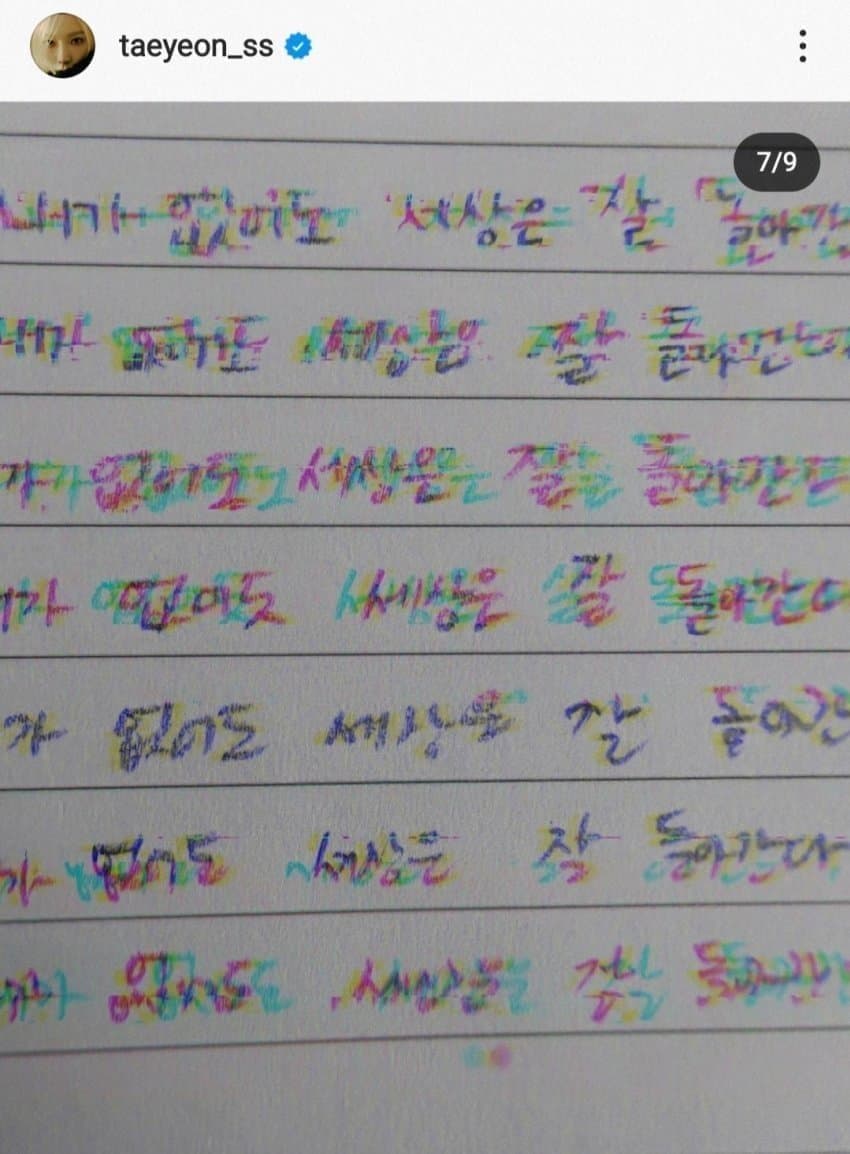 taeyeon_ss
7/9
내가 없어도 세상은 잘 돌아간
내가 없어도 세상은 잘 돌아간다
가 없어도 세상은 잘 돌아간다
가 없어도 세상은 잘 돌아간다
가 없어도 세상은 잘 돌아간
가 없어도 세상은 잘 돌아간다
가 없어도 세상은 잘 돌아간